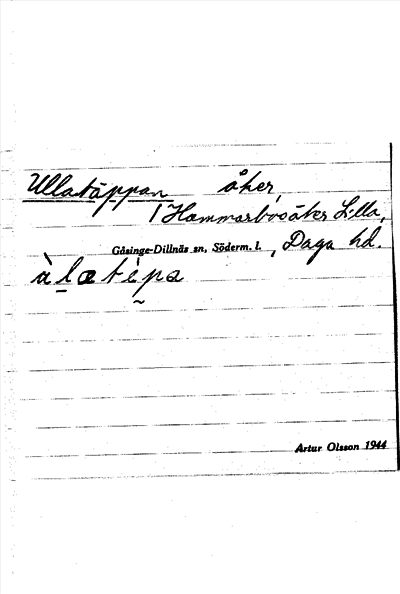 Ullatäppan åker,
1 Hammarbosäter Lilla,
Gåsinge-Dillnäs sn, Söderm. l., Daga hd.
Artur Olsson 1944